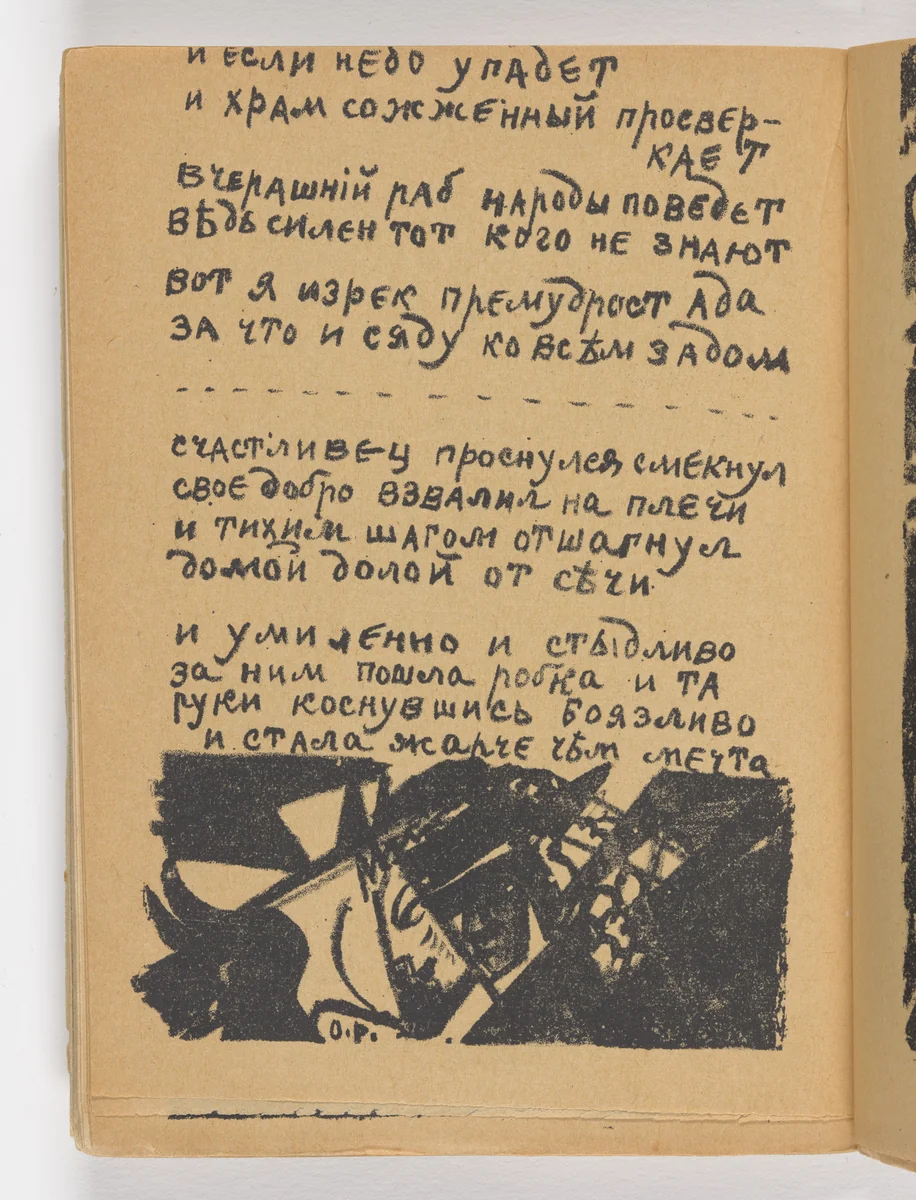 и если небо упадет
и храм сожженный просвер-
кает
вчерашнiй раб народы поведет
вѣдь силен тот кого не знают
вот я изрек премудрост ада
за что и сяду ко всѣм задом
счастливец проснулся смекнул
свое добро взвалил на плечи
и тихим шагом отшагнул
домой долой от сѣчи
и умиленно и стыдливо
за ним пошла робка и та
руки коснувшись боязливо
и стала жарче чѣм мечта
О.Р.